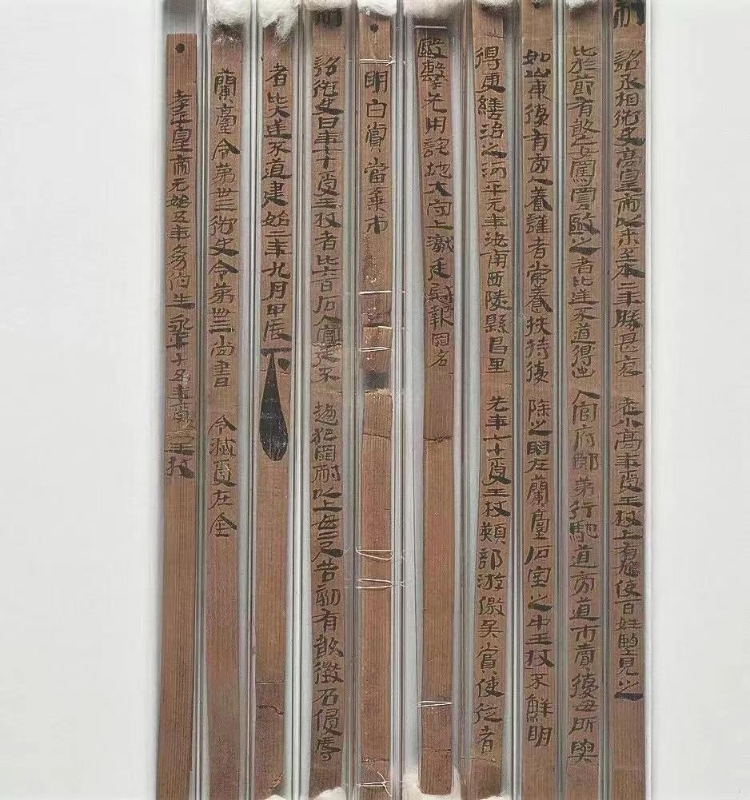 制詔丞相御史高皇帝以來至本二年勝甚哀老小高年受王杖上有鳩使百姓望見之
比於節有敢妄罵詈毆之者比逆不道得出入官府郎第行馳道旁道市賣復毋所與
如山東復有旁人養謹者常養扶持復除之明在蘭臺石室之中王杖不鮮明
得更繕治之河平元年汝南西陵縣昌里先年七十受王杖熲部游徼吴賞使從者
毆擊先用詫地大守上讞廷尉報罪名
明白賞當棄市
制詔御史曰年七十受王杖者比六百石入官廷不趨犯罪耐以上毋二尺告劾有敢徵召侵辱
者比大逆不道建始二年九月甲辰下
蘭臺令第卅三御史令第卌三尚書令滅受在金
孝平皇帝元始五年幼伯生永平十五年受王杖